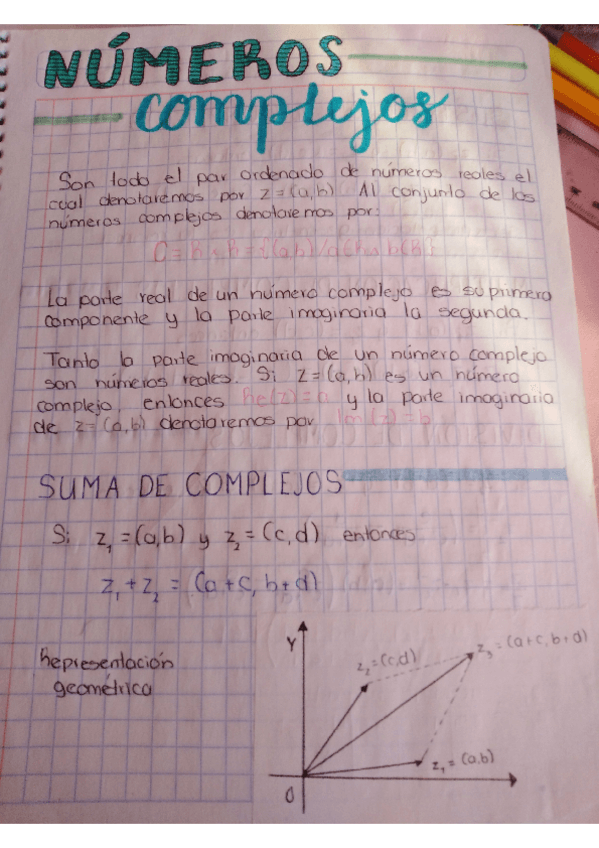 NÚMEROS
complejos
Son todo el par ordenado de números reales el
cual denotaremos por z=(a,b). Al conjunto de los
números complejos denotaremos por:
C = R × R = {(a,b)/a∈R ∧ b∈R}
La parte real de un número complejo es su primera
componente y la parte imaginaria la segunda.
Tanto la parte imaginaria de un número complejo
son números reales. Si z=(a,b) es un número
complejo, entonces Re(z)=a y la parte imaginaria
de z=(a,b) denotaremos por Im(z)=b
SUMA DE COMPLEJOS
Si z₁=(a,b) y z₂=(c,d), entonces
z₁+z₂ = (a+c, b+d)
Representación
geométrica
Y
z₂=(c,d)
z₃=(a+c,b+d)
z₁=(a,b)
0